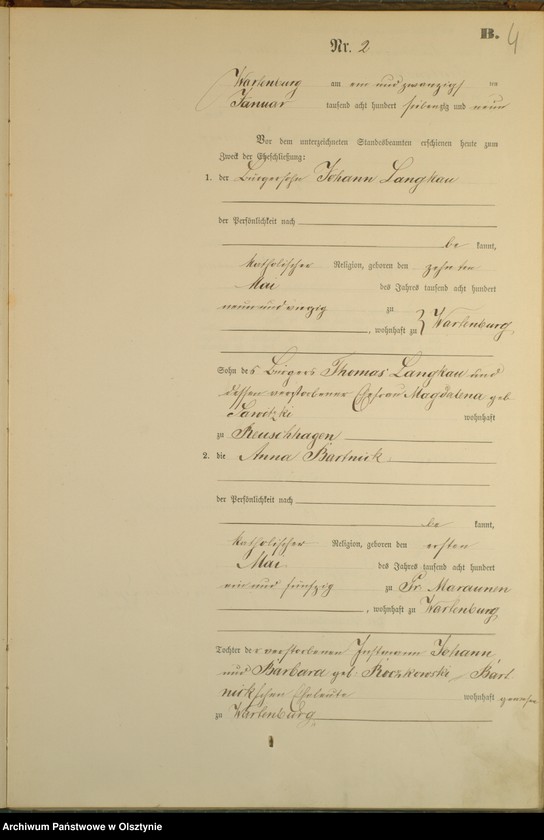 B. 4
Nr. 2
Wartenburg am ein und zwanzigsten
Januar tausend acht hundert siebenzig und neun
Vor dem unterzeichneten Standesbeamten erschienen heute zum
Zweck der Eheschließung:
1. der Bürgersohn Johann Langkau
der Persönlichkeit nach
be kannt,
katholischer Religion, geboren den zehnten
Mai des Jahres tausend acht hundert
neun und vierzig zu
, wohnhaft zu } Wartenburg
Sohn des Bürgers Thomas Langkau und
dessen verstorbener Ehefrau Magdalena geb
wohnhaft
zu Reuschhagen
2. die Anna Bartnick
der Persönlichkeit nach
be kannt,
katholischer Religion, geboren den ersten
Mai des Jahres tausend acht hundert
ein und fünfzig zu Gr. Maraunen
, wohnhaft zu Wartenburg
Tochter der verstorbenen Instmann Johann
und Barbara geb Bart
nickschen Eheleute wohnhaft
zu Wartenburg
Archiwum Państwowe w Olsztynie